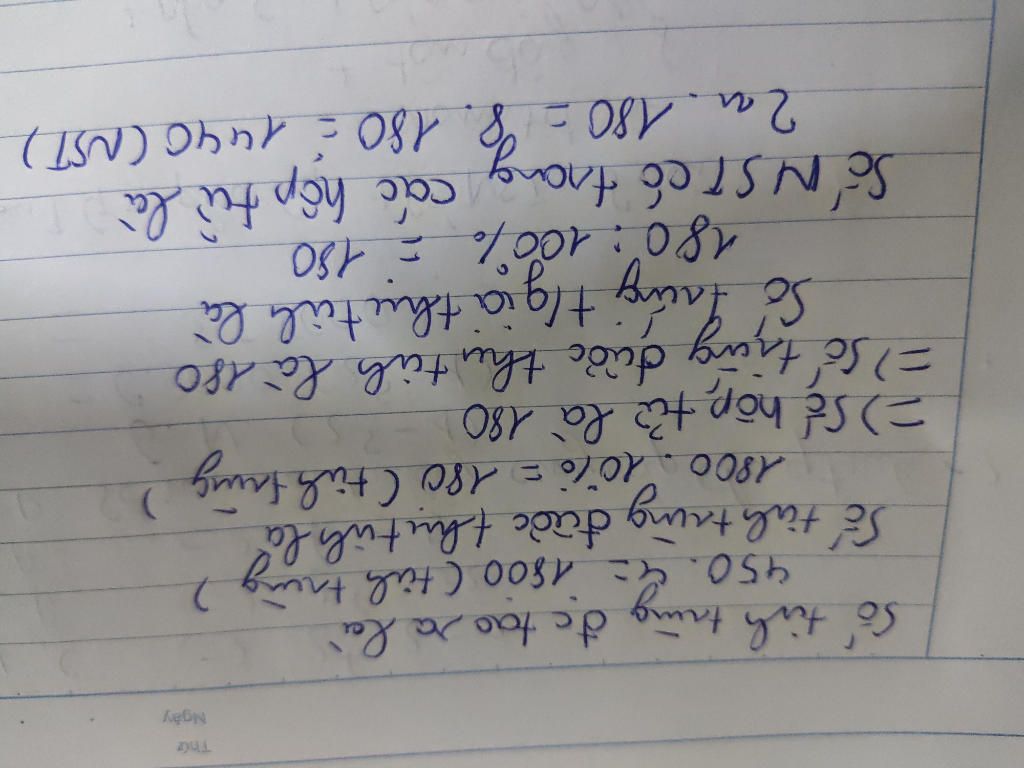 Thứ
Ngày
Số tinh trùng đc tạo ra là
450 . 4 = 1800 (tinh trùng)
Số tinh trùng được thụ tinh là
1800 . 10% = 180 (tinh trùng)
=) Số hợp tử là 180
=) Số trứng được thụ tinh là 180
Số trứng t/gia thụ tinh là
180 : 100% = 180
Số NST có trong các hợp tử là
2n . 180 = 8 . 180 = 1440 (NST)